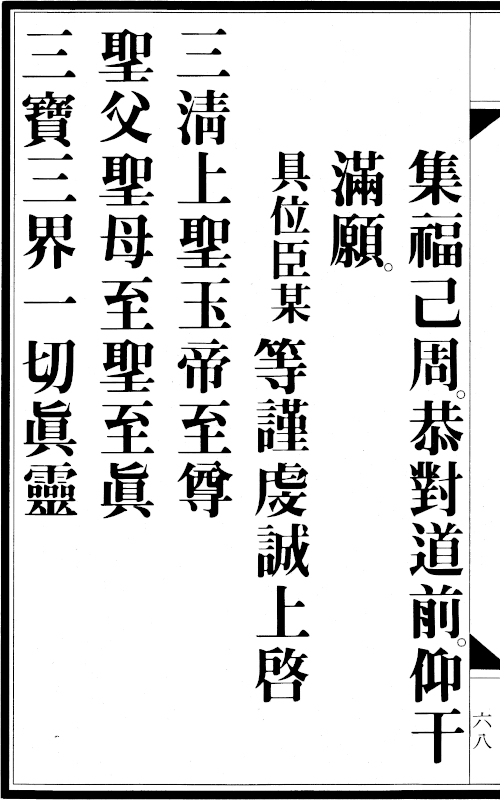 集福己周。恭對道前。仰干
滿願。
具位臣某等謹虔誠上啓
三淸上聖玉帝至尊
聖父聖母至聖至眞
三寶三界一切眞靈
六八